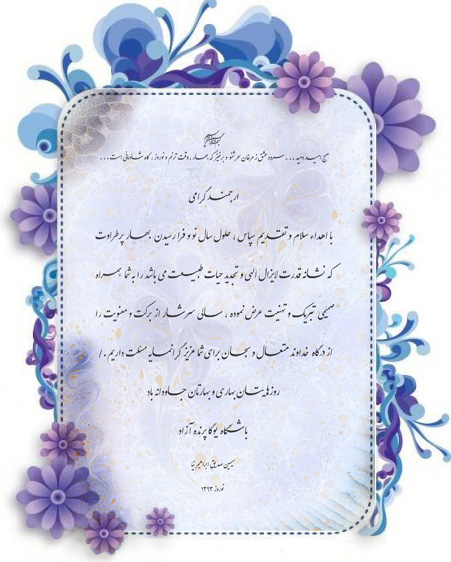 صبح امید دمید... سرود عشق ز مرغان بشنو برخیز که بهار، وقت ترنم و نوروز، گاه شادمانی است...
ارجمند گرامی
با اهداء سلام و تقدیم سپاس ، حلول سال نو و فرا رسیدن بهار پرطراوت
که نشانه قدرت لایزال الهی و تجدید حیات طبیعت می باشد را به شما همراه
صمیمی تبریک و تهنیت عرض نموده ، سالی سرشار از برکت و معنویت را
از درگاه خداوند متعال و سبحان برای شما عزیز گرانمایه مسئلت داریم ./
روزهایتان بهاری و بهارتان جاودانه باد
باشگاه یوگا پرنده آزاد
سیمین صدیق ابراهیم نیا
نوروز ۱۳۹۳